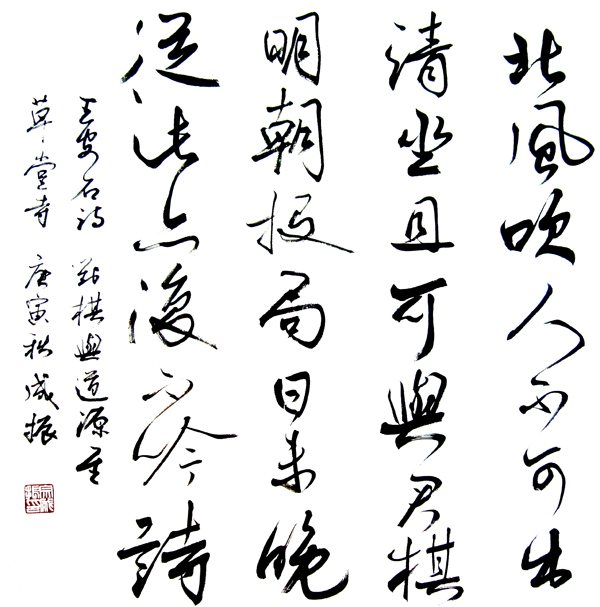 北風吹人不可出
清坐且可與君棋
明朝投局日未晚
從此亦復不吟詩
王安石詩 對棋與道源至
草堂寺 庚寅秋 振